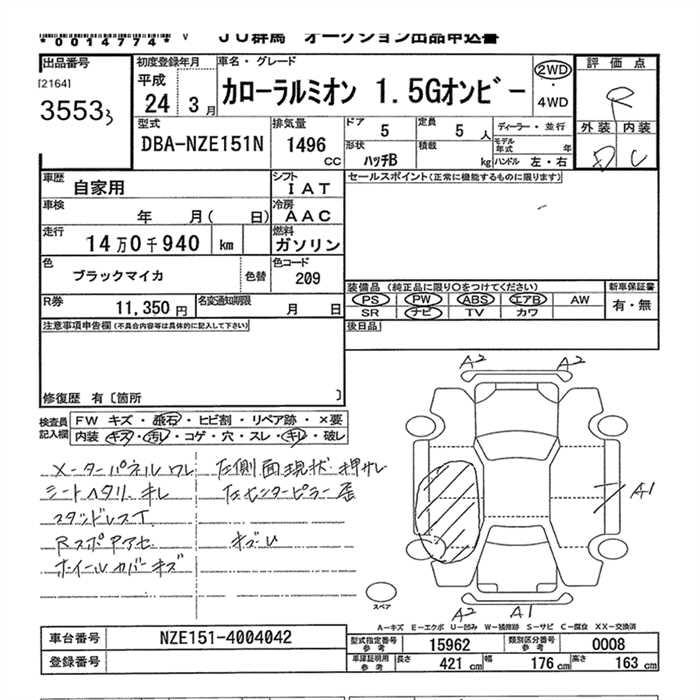 *0014774* V JU群馬 オークション出品申込書
出品番号
[2164]
3553
3
初度登録年月
平成
24年 3月
車名・グレード
カローラルミオン 1.5Gオンビー
2WD
・
4WD
評価点
R
外装 内装
D C
型式
DBA-NZE151N
排気量
1496
CC
ドア
5
定員
5人
ディーラー・並行
モデル年式 年
形状
ハッチB
積載
kg
ハンドル 左・右
車歴
自家用
シフト
IAT
セールスポイント(正常に機能するものに限ります)
車検
年 月( 日)
冷房
AAC
走行
14万0千940 km
燃料
ガソリン
色
ブラックマイカ
色替
色コード
209
装備品(純正品に限り○をつけてください)
PS PW ABS エアB AW
SR ナビ TV カワ
新車保証書
有・無
R券
11,350円
名変通知期限
月 日
後日品
注意事項申告欄(不具合内容等は具体的に記入して下さい)
修復歴 有〔箇所 〕
検査員
記入欄
FW キズ・飛石・ヒビ割・リペア跡・×要
内装・キズ・汚レ・コゲ・穴・スレ・キレ・破レ
メーターパネル ワレ
左側面現状 押サレ
シートヘタリ. キレ
左センターピラー 歪
スタッドレスT
キズU
ホイールカバー キズ
A2 A2
A1
A2 A1
スペア
A-キズ E-エクボ U-凹み W-補修跡 S-サビ C-腐食 XX-交換済
車台番号
NZE151-4004042
登録番号
型式指定番号
参考
15962
類別区分番号
参考
0008
車庫証明用
参考
長さ 421 cm 幅 176 cm 高さ 163 cm